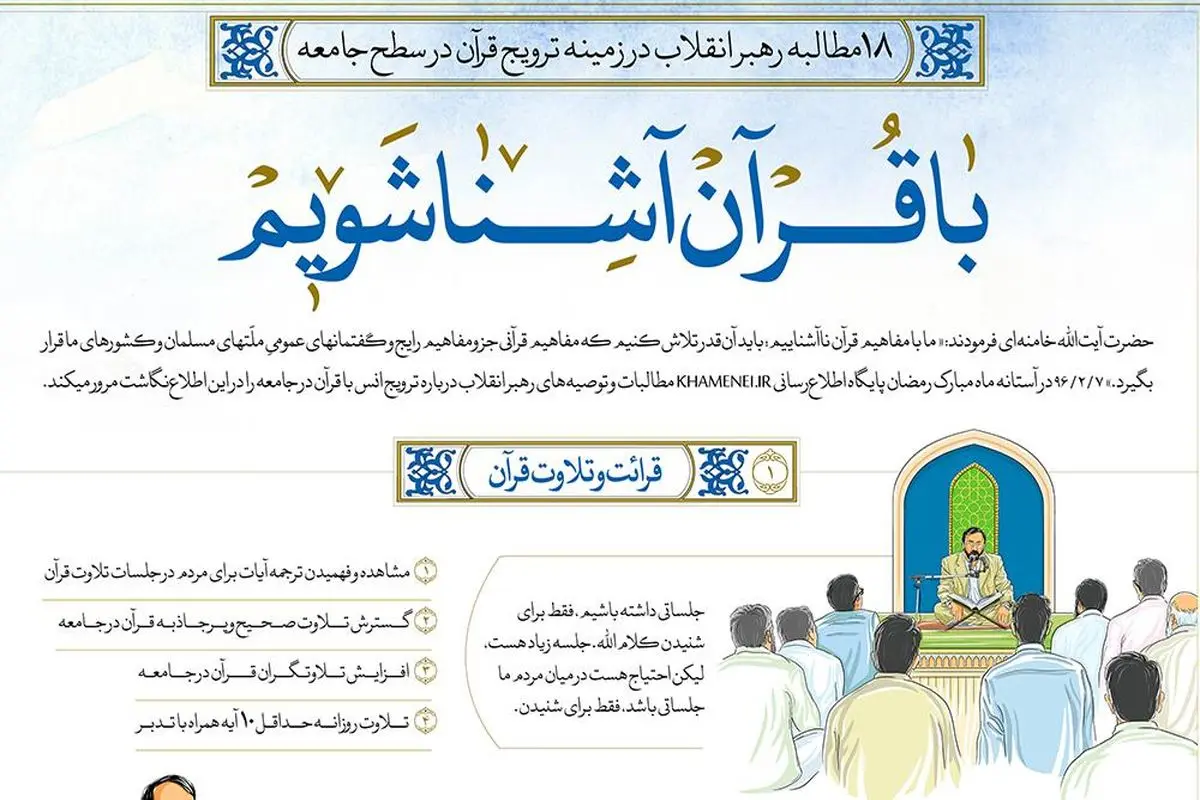 ۱۸ مطالبه رهبر انقلاب در زمینه ترویج قرآن در سطح جامعه
با قُرآن آشِنا شَویم
حضرت آیت‌الله خامنه‌ای فرمودند: «ما با مفاهیم قرآن ناآشناییم؛ باید آن‌قدر تلاش کنیم که مفاهیم قرآنی جزو مفاهیم رایج و گفتمانهای عمومیِ ملّتهای مسلمان و کشورهای ما قرار
بگیرد.» ۹۶/۲/۷ در آستانه ماه مبارک رمضان پایگاه اطلاع‌رسانی KHAMENEI.IR مطالبات و توصیه‌های رهبر انقلاب درباره ترویج انس با قرآن در جامعه را در این اطلاع‌نگاشت مرور میکند.
۱ قرائت و تلاوت قرآن
جلساتی داشته باشیم، فقط برای
شنیدن کلام الله. جلسه زیاد هست،
لیکن احتیاج هست در میان مردم ما
جلساتی باشد، فقط برای شنیدن.
۱ مشاهده و فهمیدن ترجمه آیات برای مردم در جلسات تلاوت قرآن
۲ گسترش تلاوت صحیح و پرجاذبه قرآن در جامعه
۳ افزایش تلاوتگران قرآن در جامعه
۴ تلاوت روزانه حداقل ۱۰ آیه همراه با تدبر